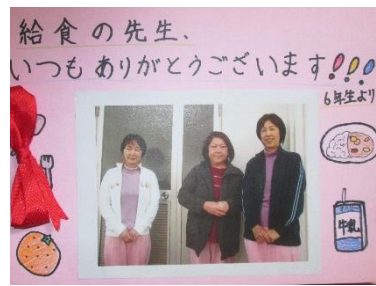 給食の先生、
いつもありがとうございます!!!
6年生より
牛乳